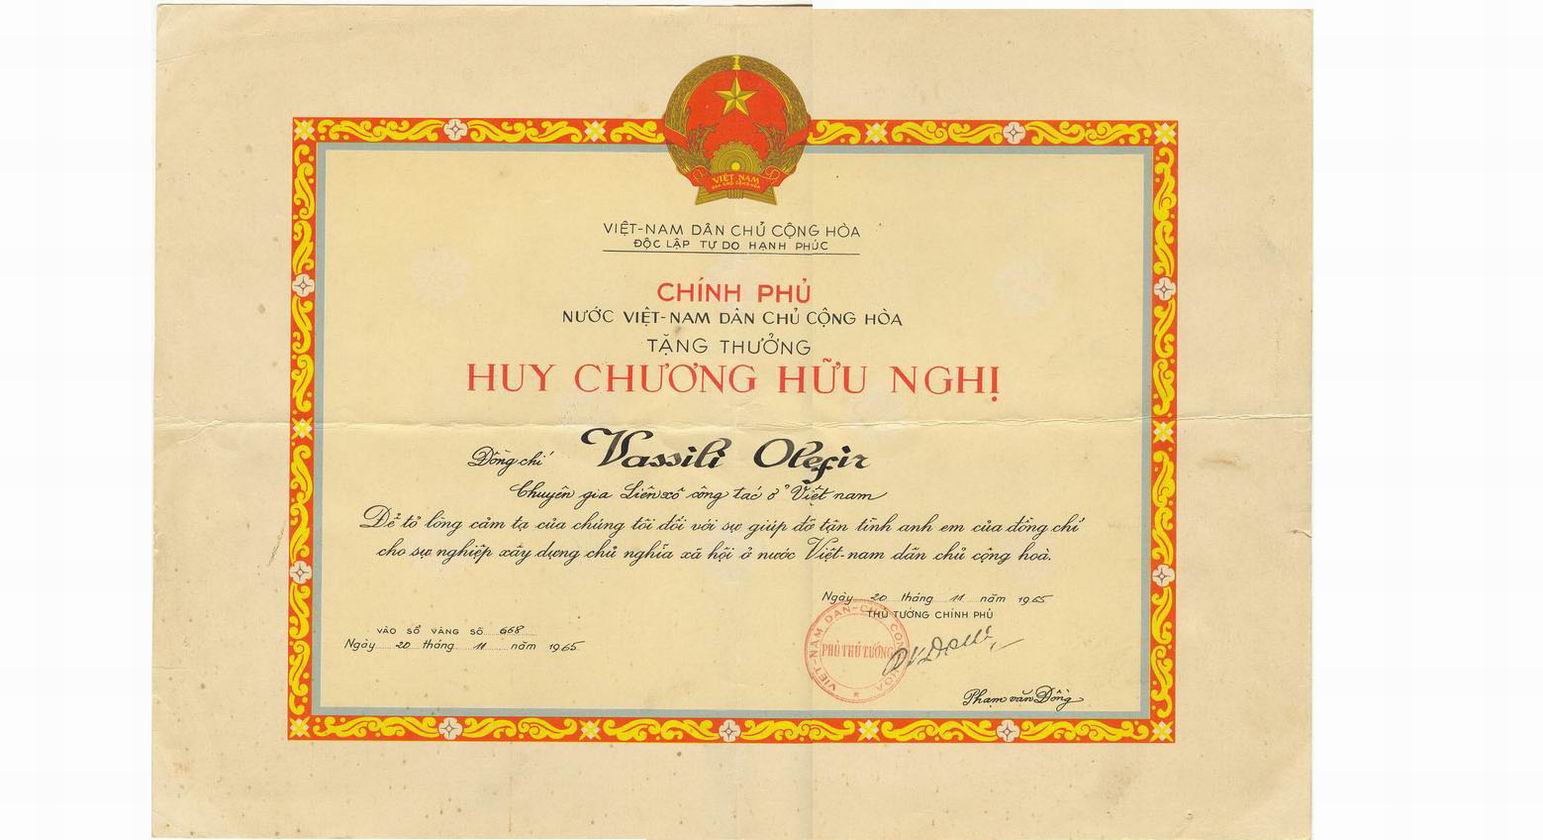 VIỆT NAM
DÂN CHỦ CỘNG HÒA
VIỆT-NAM DÂN CHỦ CỘNG HÒA
ĐỘC LẬP TỰ DO HẠNH PHÚC
CHÍNH PHỦ
NƯỚC VIỆT-NAM DÂN CHỦ CỘNG HÒA
TẶNG THƯỞNG
HUY CHƯƠNG HỮU NGHỊ
Đồng chí Vassili Olefir
Chuyên gia Liên xô công tác ở Việt nam
Để tỏ lòng cảm tạ của chúng tôi đối với sự giúp đỡ tận tình anh em của đồng chí
cho sự nghiệp xây dựng chủ nghĩa xã hội ở nước Việt-nam dân chủ cộng hoà.
Ngày 20 tháng 11 năm 1965
THỦ TƯỚNG CHÍNH PHỦ
VIỆT-NAM DÂN-CHỦ CỘNG HÒA
PHỦ THỦ TƯỚNG
Phạm văn Đồng
VÀO SỔ VÀNG SỐ 668
Ngày 20 tháng 11 năm 1965